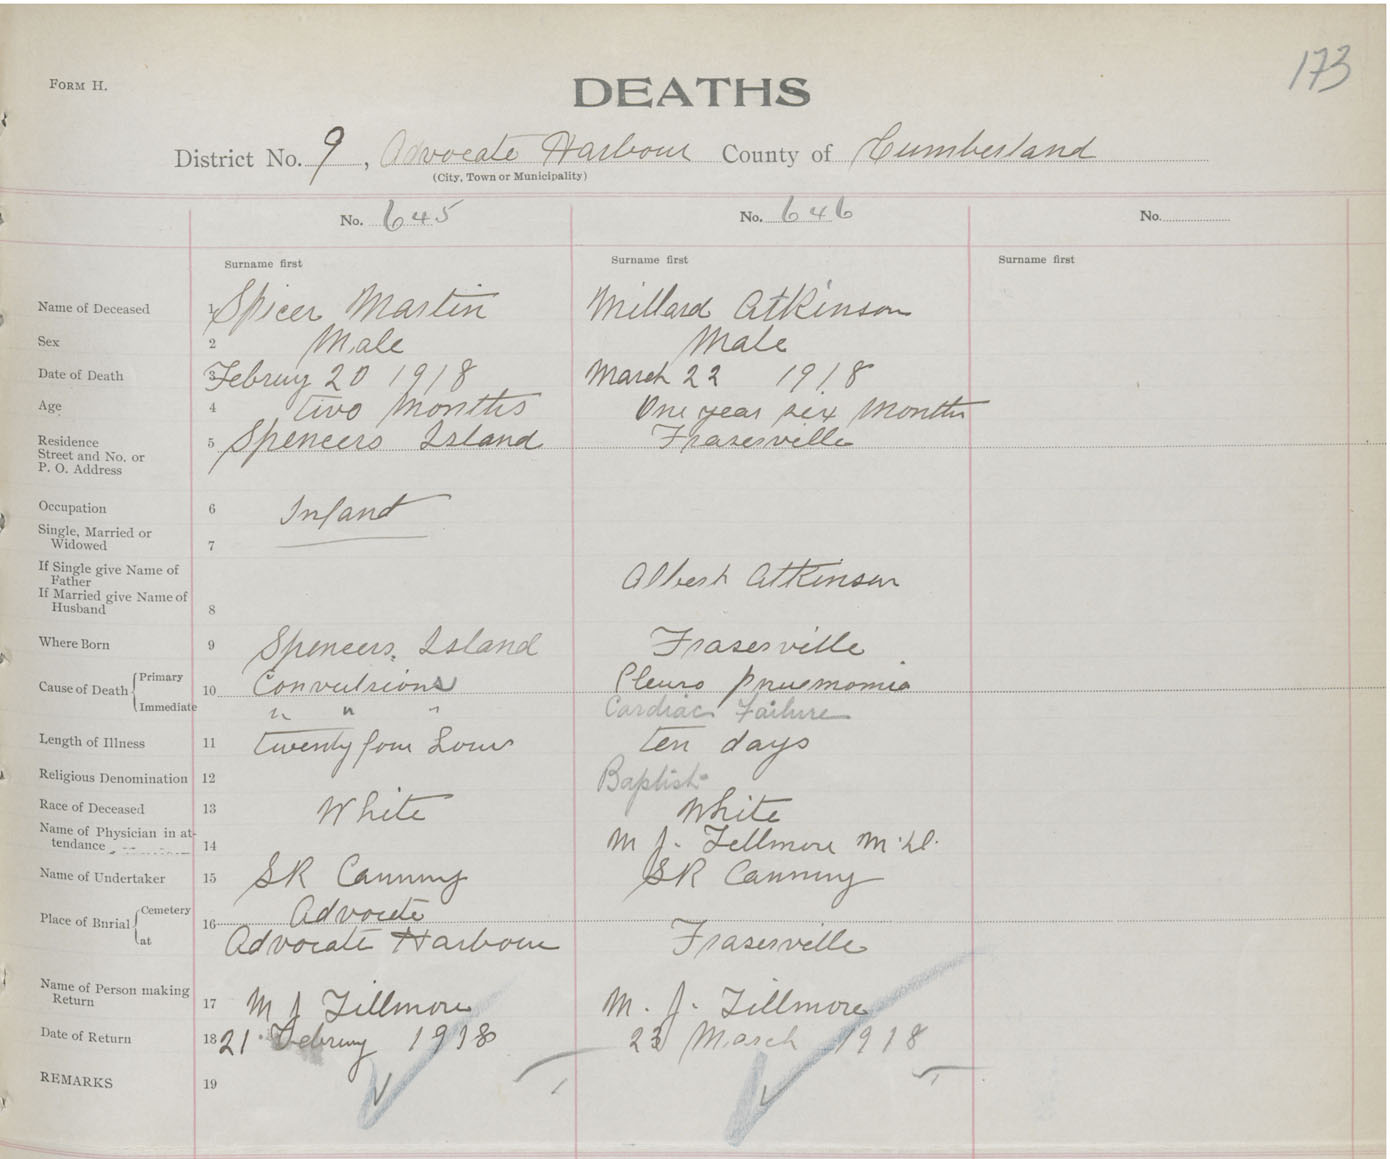 173
FORM H.
DEATHS
District No. 9, Advocate Harbour County of Cumberland
(City, Town or Municipality)
No. 645 No. 646 No.
Surname first Surname first Surname first
Name of Deceased 1 Spicer Martin Millard Atkinson
Sex 2 Male Male
Date of Death 3 Februry 20 1918 March 22 1918
Age 4 two months One year six months
Residence
Street and No. or
P. O. Address 5 Spencers Island Frasersville
Occupation 6 Infant
Single, Married or
Widowed 7
If Single give Name of
Father Albert Atkinson
If Married give Name of
Husband 8
Where Born 9 Spencers Island Frasersville
Cause of Death Primary 10 Convulsions Pleuro pnuemomia
Immediate " " " Cardiac Failure
Length of Illness 11 twenty four hours ten days
Religious Denomination 12 Baptist
Race of Deceased 13 White White
Name of Physician in at-
tendance 14 M J. Fillmore M.D.
Name of Undertaker 15 SR Canning SR Canning
Place of Burial Cemetery 16 Advocate
at Advocate Harbour Frasersville
Name of Person making
Return 17 M J Fillmore M. J. Fillmore
Date of Return 18 21 Februry 1918 23 March 1918
REMARKS 19